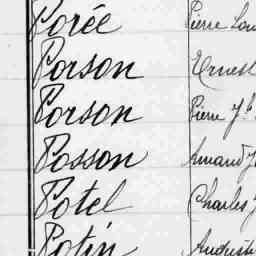 Porée Pierre Lou
Porson Ernest
Porson Pierre J.
Posson Amand J
Potel Charles J
Potin Auguste